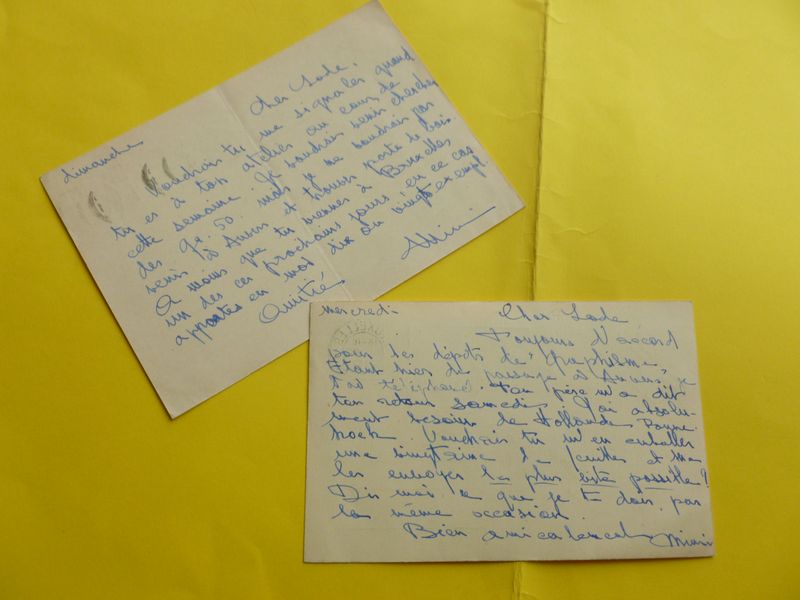 dimanche
Cher Lode,
Voudrais tu me signaler quand
tu es à ton atelier au cours de
cette semaine. Je voudrais venir chercher
des 50. mais je ne voudrais pas
venir à Anvers et trouver porte de bois
A moins que tu viennes à Bruxelles
un des ces prochains jours. en ce cas
apportes en moi dix ou vingt exempl.
Amitié
mercredi
Cher Lode
Toujours D'accord
pour les dépôts de Graphisme,
Etant hier de passage à Anvers, je
t'ai téléphoné. Ton père m'a dit
ton retour samedi. J'ai absolu-
ment besoin de Hollande
Voudrais tu m'en emballer
une vingtaine de feuilles et me
les envoyer le plus vite possible?
Dis moi ce que je te dois par
la même occasion.
Bien amicalement Mimi